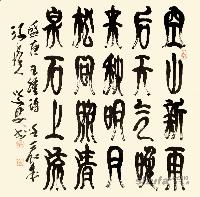 空山新雨
后天气晚
来秋明月
松間照清
泉石上流
唐王維詩